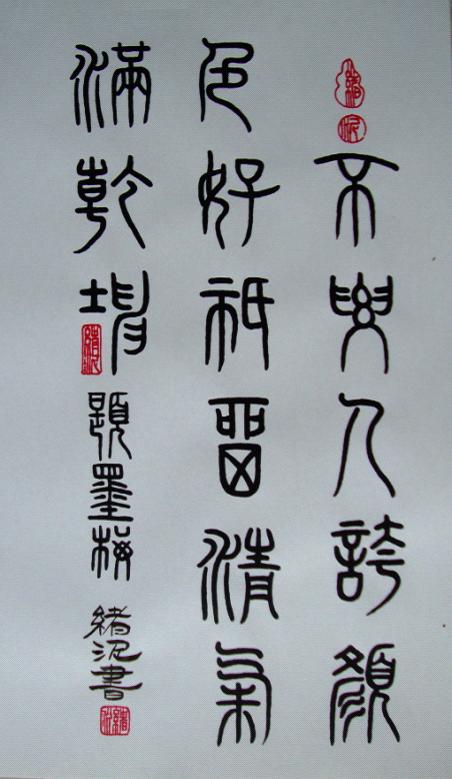 不要人誇顏
色好祇留清氣
滿乾坤
題墨梅
緒書